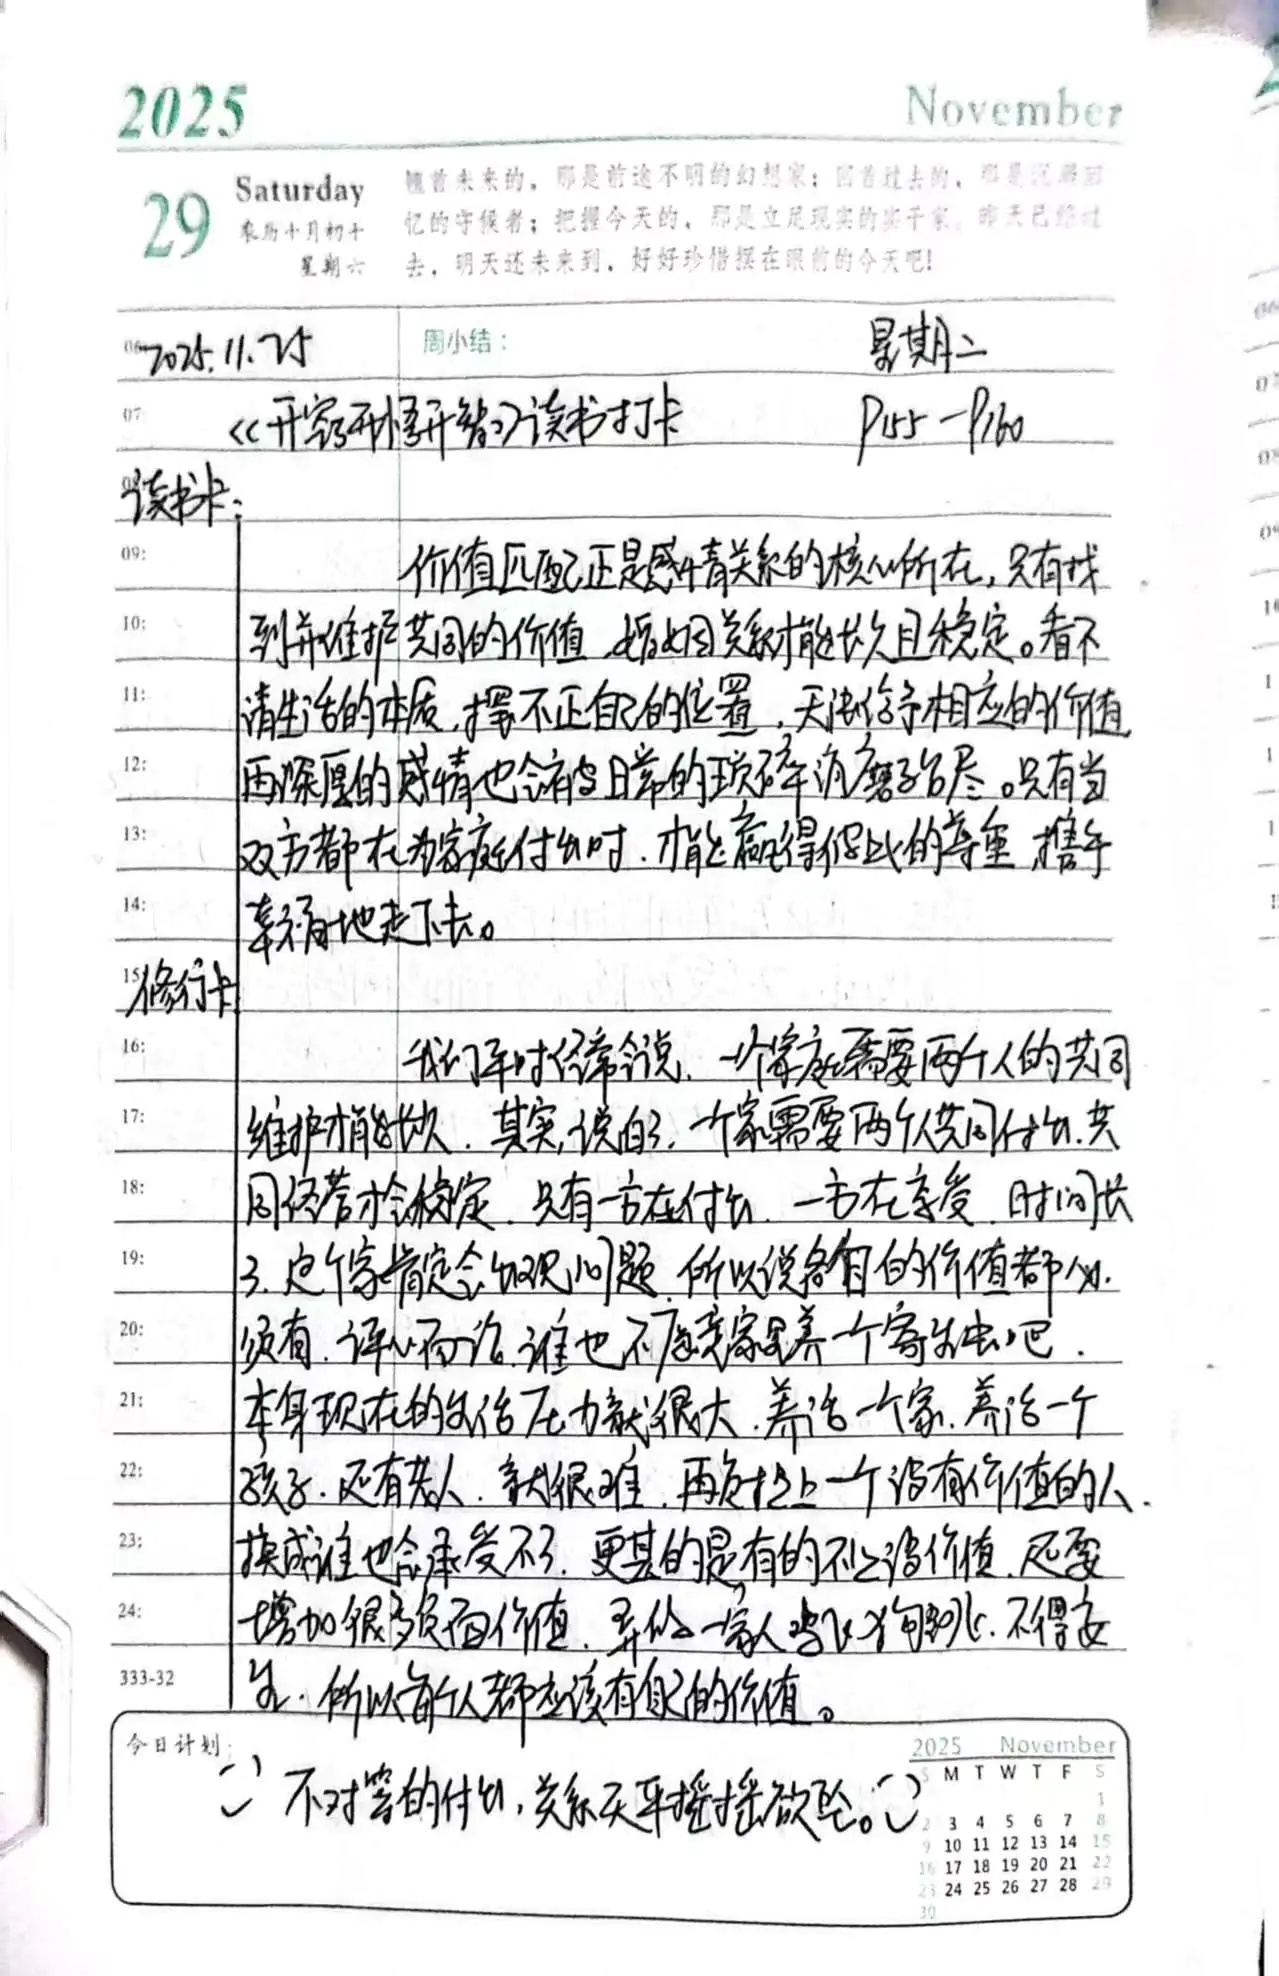 2025 November
29 Saturday
农历十月初十
星期六
翘首未来的，那是前途不明的幻想家；回首过去的，那是沉溺回
忆的守候者；把握今天的，那是立足现实的实干家。昨天已经过
去，明天还未来到，好好珍惜摆在眼前的今天吧！
06 2025.11.25 周小结： 星期二
07: 《开窍开悟开智》读书打卡 P155-P160
读书卡：
09: 价值匹配正是感情关系的核心所在，只有找
10: 到并维护共同的价值，婚姻关系才能长久且稳定。看不
11: 清生活的本质，摆不正自己的位置，无法给予相应的价值
12: 再深厚的感情也会被日常的琐碎消磨殆尽。只有当
13: 双方都在为家庭付出时，才能赢得彼此的尊重，携手
14: 幸福地走下去。
15 修行卡
16: 我们平时经常会说，一个家庭需要两个人的共同
17: 维护才能长久，其实，说白了，一个家需要两个人共同付出，共
18: 同经营才会稳定，只有一方在付出，一方在享受，时间长
19: 了，这个家肯定会出现问题，所以说各自的价值都必
20: 须有，评心而论，谁也不愿意家里养一个寄生虫吧，
21: 本身现在的生活压力就很大，养活一个家，养活一个
22: 孩子，还有老人，就很难，再负担上一个没有价值的人，
23: 换成谁也会承受不了，更甚的是有的不止没价值，还要
24: 增加很多负面价值，弄的一家人鸡飞狗跳，不得安
333-32 生，所以每个人都应该有自己的价值。
今日计划：
不对等的付出，关系天平摇摇欲坠。
2025 November
S M T W T F S
1
2 3 4 5 6 7 8
9 10 11 12 13 14 15
16 17 18 19 20 21 22
23 24 25 26 27 28 29
30